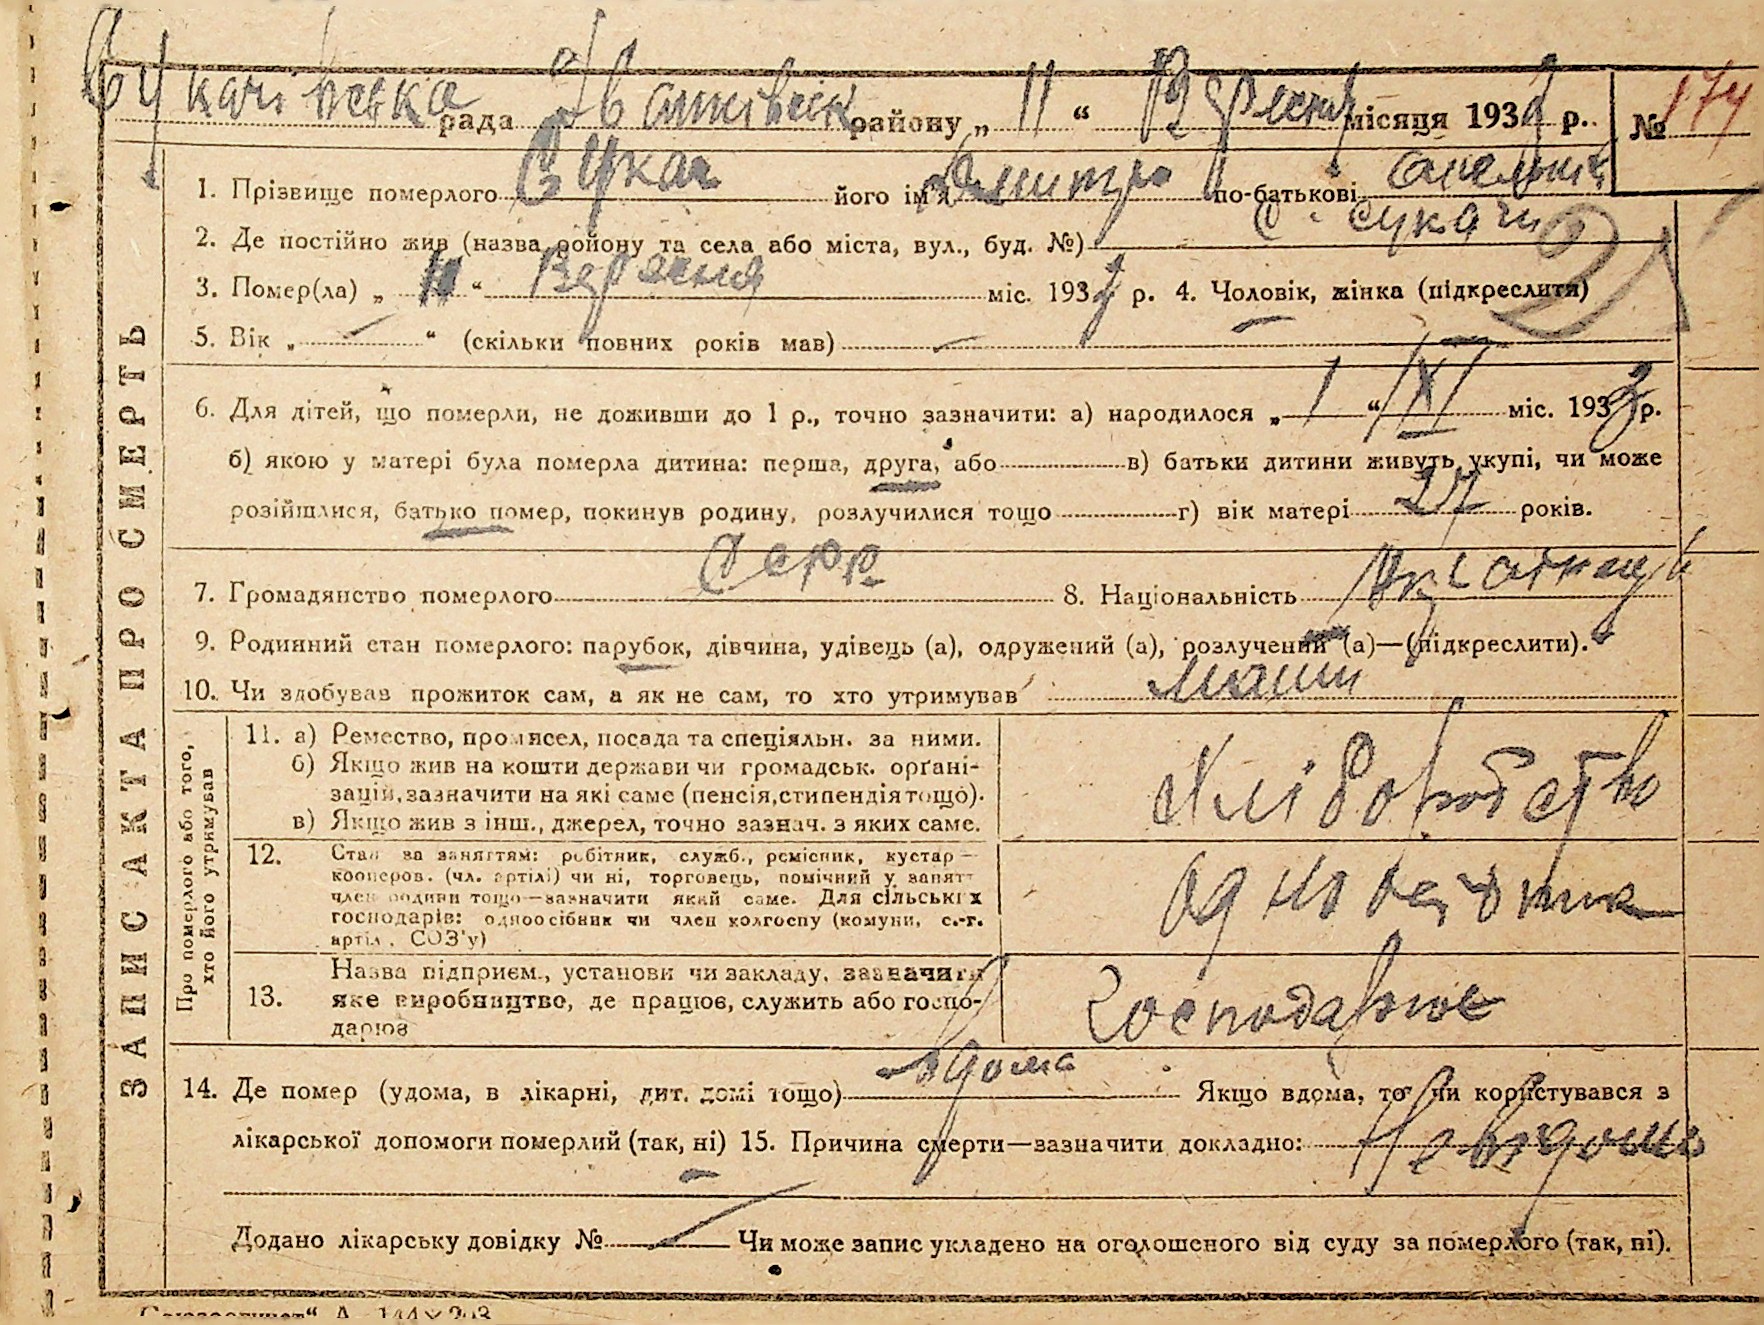 Сукачівська рада Іванківськ району „ 11 “ Вересня місяця 1932 р. № 174
1. Прізвище померлого Сукач його ім'я Дмитро по-батькові
2. Де постійно жив (назва району та села або міста, вул., буд. №) с. Сукачі
3. Помер(ла) „ 11 “ Вересня міс. 1932 р. 4. Чоловік, жінка (підкреслити)
5. Вік „ — “ (скільки повних років мав) —
6. Для дітей, що померли, не доживши до 1 р., точно зазначити: а) народилося „ 1 “ міс. 1932 р.
б) якою у матері була померла дитина: перша, друга, або в) батьки дитини живуть укупі, чи може
розійшлися, батько помер, покинув родину, розлучилися тощо г) вік матері 27 років.
7. Громадянство померлого СССР 8. Національність Українець
9. Родинний стан померлого: парубок, дівчина, удівець (а), одружений (а), розлучений (а)—(підкреслити).
10. Чи здобував прожиток сам, а як не сам, то хто утримував мати
ЗАПИС АКТА ПРО СМЕРТЬ
Про померлого або того, хто його утримував
11. а) Ремество, промисел, посада та спеціяльн. за ними.
б) Якщо жив на кошти держави чи громадськ. орґані-
зацій, зазначити на які саме (пенсія, стипендія тощо).
в) Якщо жив з інш., джерел, точно зазнач. з яких саме.
Хліборобство
12. Стан за заняттям: робітник, служб., ремісник, кустар—
кооперов. (чл. артілі) чи ні, торговець, помічний у занятт
член родини тощо—зазначити який саме. Для сільських
господарів: одноосібник чи член колгоспу (комуни, с.-г.
артіл., СОЗ'у)
одноосібник
13. Назва підприєм., установи чи закладу, зазначити
яке виробництво, де працює, служить або госпо-
дарює
господарює
14. Де помер (удома, в лікарні, дит. домі тощо) вдома Якщо вдома, то чи користувався з
лікарської допомоги померлий (так, ні) 15. Причина смерти—зазначити докладно: Невідомо
Додано лікарську довідку № — Чи може запис укладено на оголошеного від суду за померлого (так, ні).